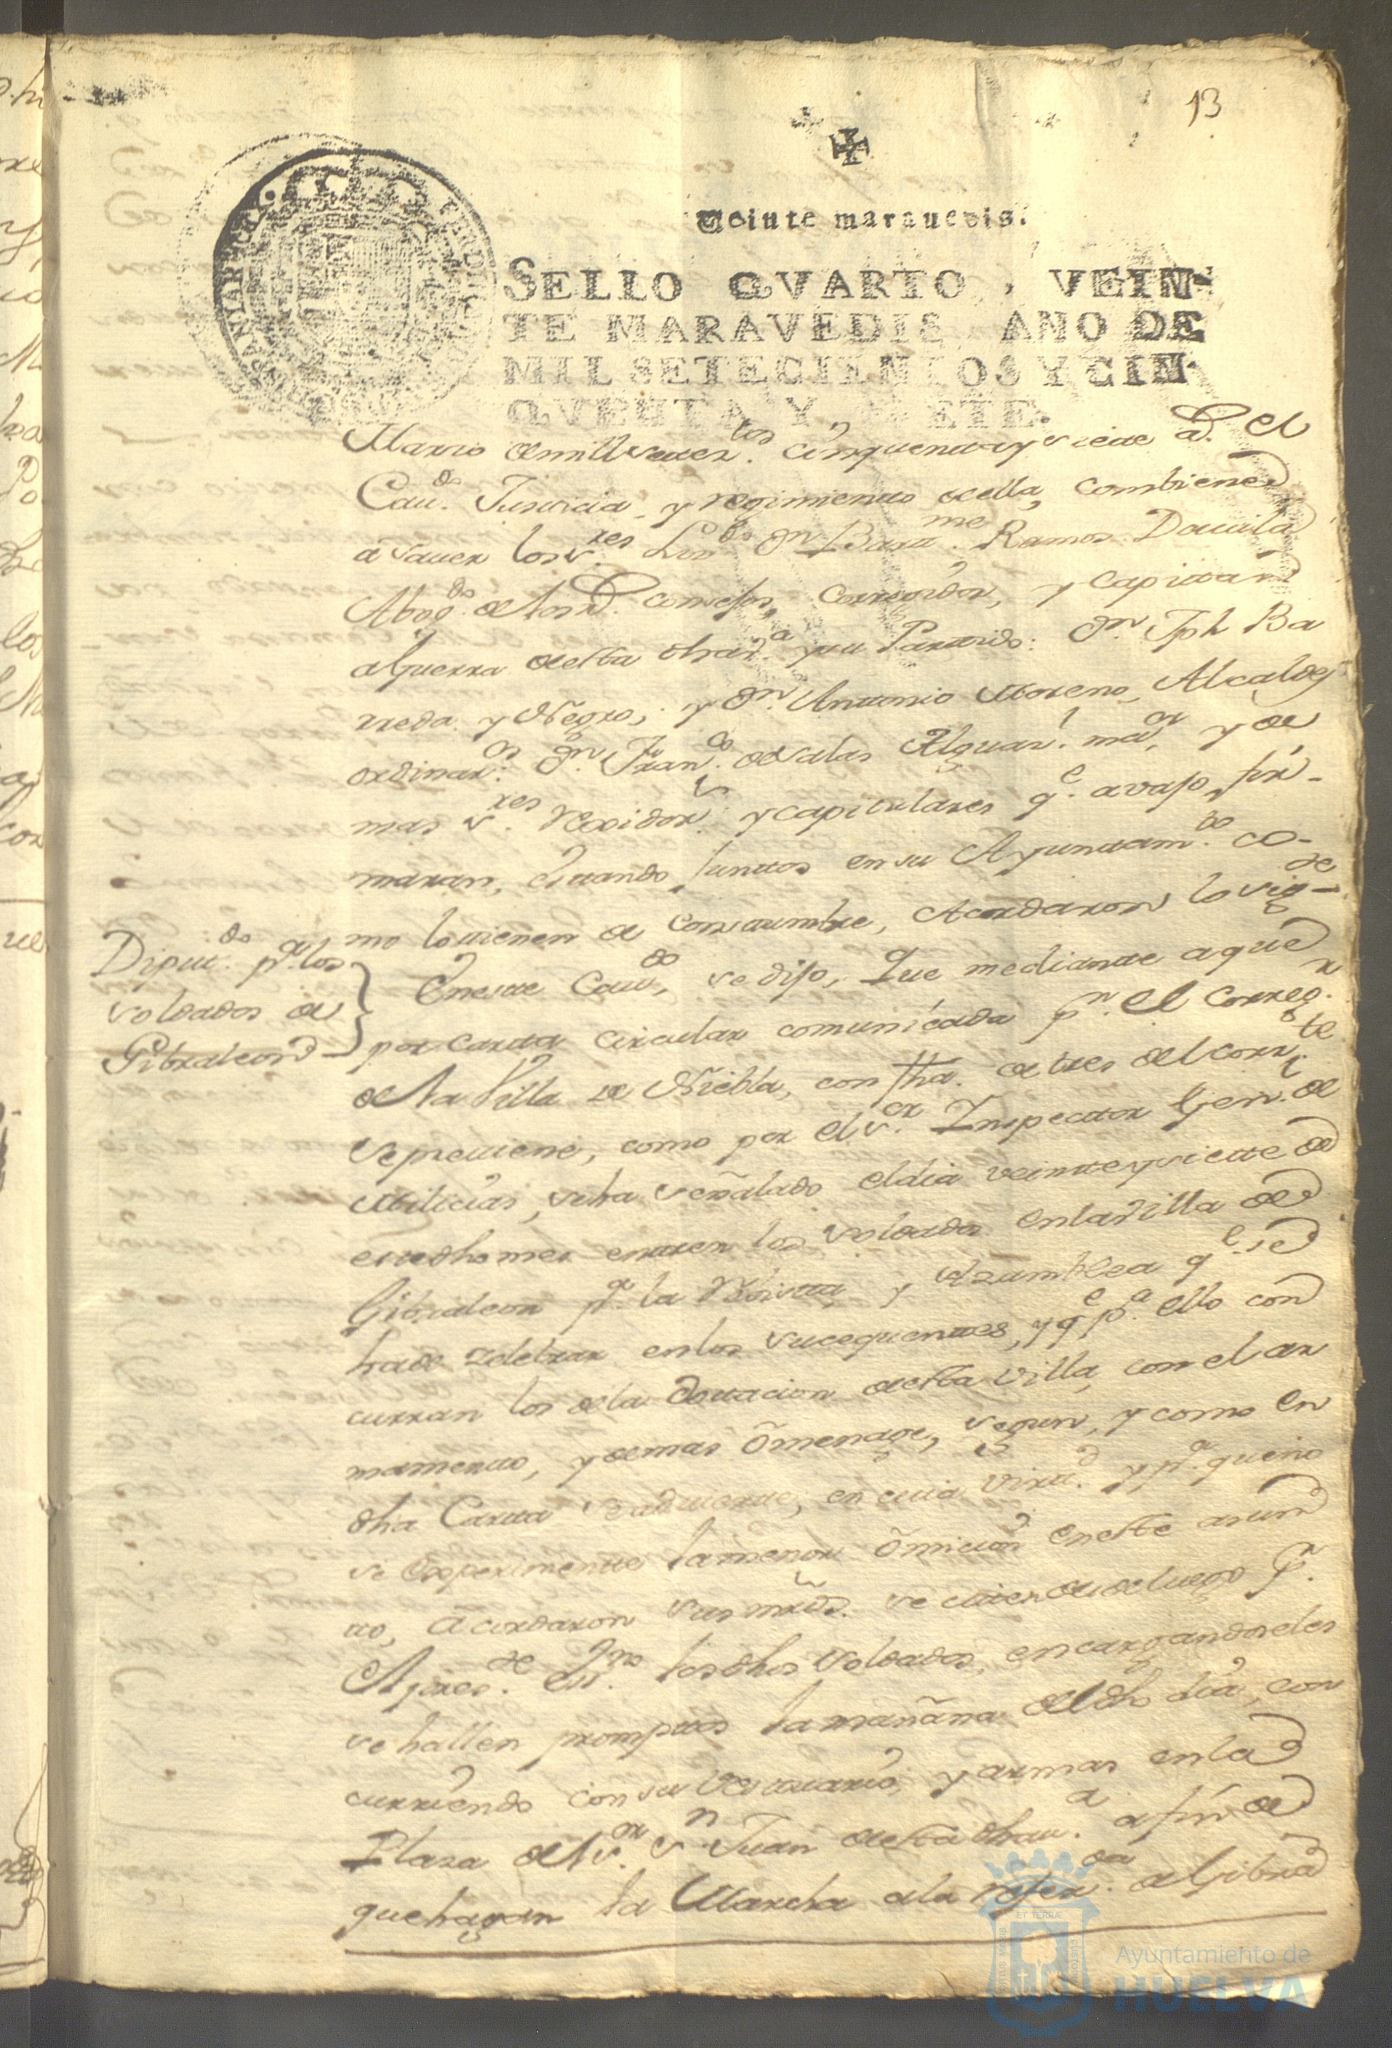 13
Veinte marauedis.
SELLO QVARTO, VEIN-
TE MARAVEDIS, AÑO DE
MIL SETECIENTOS Y CIN-
QVENTA Y SIETE.
Marzo de mill setez.tos cinquenta y siete a.s el
Cau.do Justicia, y regimiento de ella, combiene
á sauer los s.res Liz.do Dn Barm.e Ramos Dauila
Abog.do de los R.s Consejos, Corregidor, y Capitan
a Guerra de esta dha V.a y su Partido: Dn Jph Ba
rreda y Negro, y Dn Antonio Moreno, Alcaldes
ordinar.os Dn Fran.co de Salas Alguaz.l ma.or y de
mas s.res Rexidor.s y capitulares q.e avajo fir-
maran, estando juntos en su Ayuntam.to co-
mo lo tienen de constumbre, Acordaron lo sig.te
Diput.do p.a los
soldados de
Gibraleon
En este Cau.do se dijo, Que mediante a que
por carta circular comunicada p.r el Correg.r
de la Villa de Niebla, con fha. de tres del corr.te
se preuiene, como por el s.or Inspector Gen.l de
Milicias, se ha señalado el dia veinte y siete de
este dho mes entren los soldados en la villa de
Gibraleon p.a la Revista y Asamblea q.e se
ha de zelebrar en los sucequentes, y q.e p.a ello con
curran los de la dotacion de esta villa, con el ar
mamento, y demas omenage, segun, y como en
dha Carta se aduierte, en cuia virtu.d y p.a que no
se experimente la menor omicion en este asun
to, Acordaron sus mrds. se citen desde luego p.r
Ajptes.de est.no los dhos soldados, encargandoseles
se hallen promptos la mañana del dho dia, con
curriendo con su vestuario, y armas en la
Plaza del s.or Sn Juan de esta dha v.a a fin de
que hagan la Marcha a la refer.da de Gibra
Ayuntamiento de
HUELVA